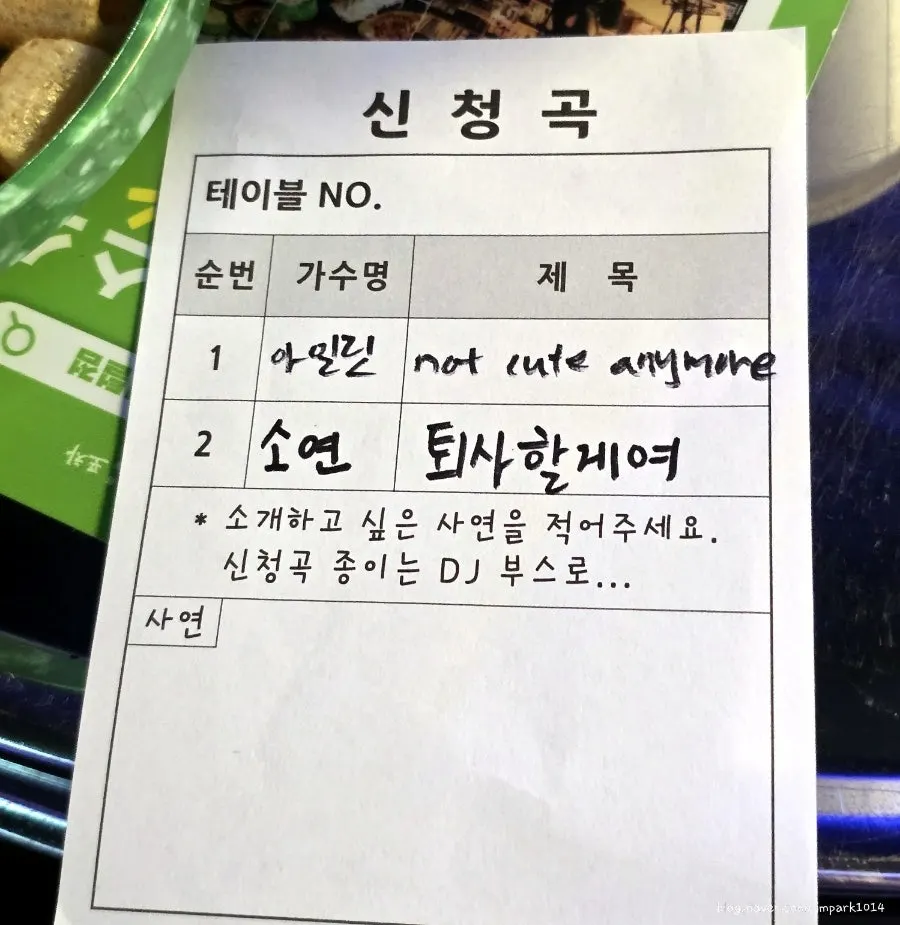 신청곡
테이블 NO.
순번 가수명 제 목
1 아일릿 not cute anymore
2 소연 퇴사할게여
* 소개하고 싶은 사연을 적어주세요.
신청곡 종이는 DJ 부스로...
사연
포차